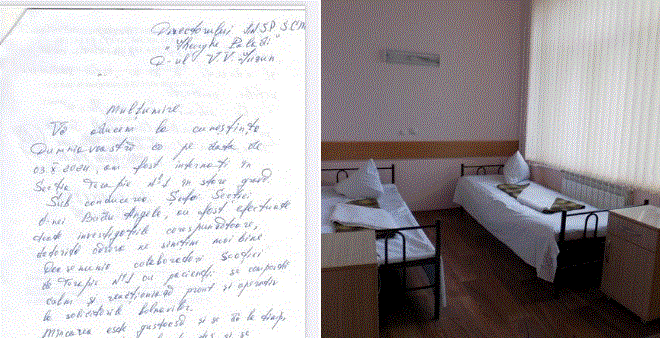 Directorului IMSP SCM
"Gheorghe Paladi"
D-lui V.V.
Mulțumire
Vă aducem la cunoștință
Dumneavoastră că pe data de
03.X 2024, am fost internați în
Secția Terapie N°1 în stare gravă.
Sub conducerea Șefei Secției
d-nei Angela, au fost efectuate
toate investigațiile corespunzătoare,
datorită cărora ne simțim mai bine.
colaboratorii Secției
de Terapie N°1 cu pacienții se comportă
calm și reacționează prompt și operativ
la solicitările bolnavilor.
Mîncarea este gustoasă și se dă la timp,
și se